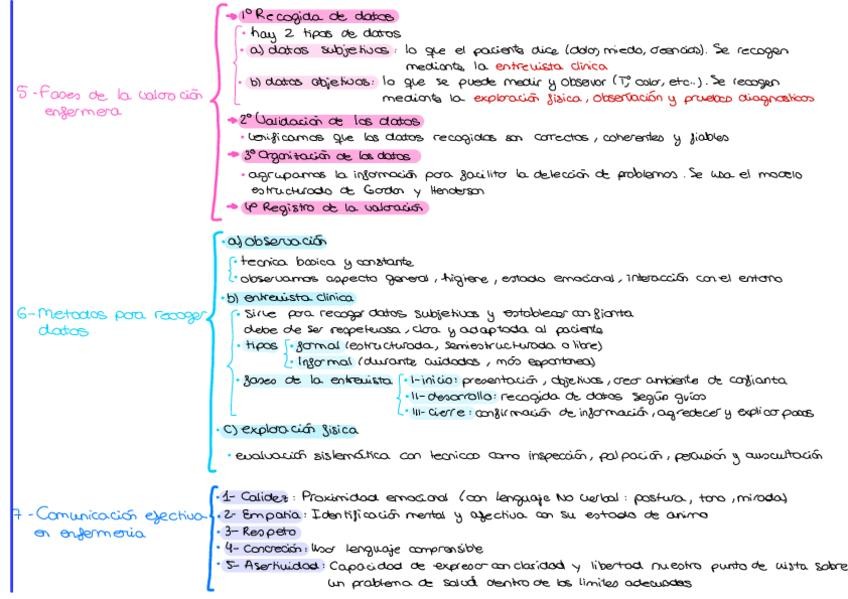 → 1º Recogida de datos
· hay 2 tipos de datos
· a) datos subjetivos: lo que el paciente dice (dolor, miedo, creencias). Se recogen
mediante la entrevista clínica
5-Fases de la valoración
enfermera
· b) datos objetivos: lo que se puede medir y observar (Tº, color, etc..). Se recogen
mediante la exploración física, observación y pruebas diagnosticas
→ 2º Validación de los datos
· verificamos que los datos recogidos son correctos, coherentes y fiables
→ 3º Organización de los datos
· agrupamos la información para facilitar la detección de problemas. Se usa el modelo
estructurado de Gordon y Henderson
→ 4º Registro de la valoración
· a) observación
· tecnica basica y constante
· observamos aspecto general, higiene, estado emocional, interacción con el entorno
6-Metodos para recoger
datos
· b) entrevista clínica
· Sirve para recoger datos subjetivos y establecer confianza
debe de ser respetuosa, clara y adaptada al paciente
· tipos
· formal (estructurada, semiestructurada o libre)
· Informal (durante cuidados, más espontanea)
· fases de la entrevista
· I-inicio: presentación, objetivos, crear ambiente de confianza
· II-desarrollo: recogida de datos según guías
· III-cierre: confirmación de información, agredecer y explicar pasos
· c) exploración física
· evaluación sistemática con tecnicas como inspección, palpación, percusión y auscultación
7-Comunicación efectiva
en enfermeria
· 1- Calidez: Proximidad emocional (con lenguaje No verbal: postura, tono, mirada)
· 2- Empatia: Identificación mental y afectiva con su estado de animo
· 3- Respeto
· 4- Concreción: Usar lenguaje comprensible
· 5- Asertividad: Capacidad de expresar con claridad y libertad nuestro punto de vista sobre
un problema de salud dentro de los limites adecuados